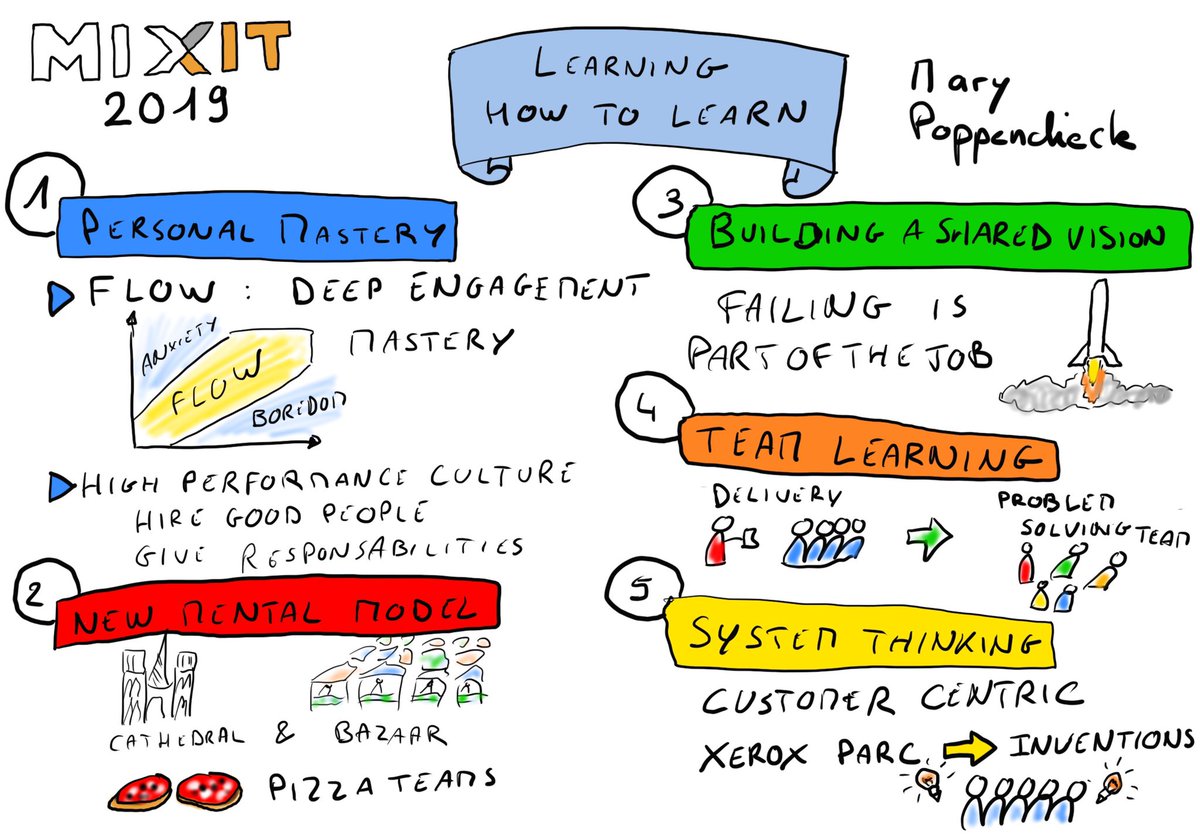 MIXIT
2019
LEARNING
HOW TO LEARN
Mary
Poppendieck
1
PERSONAL MASTERY
FLOW : DEEP ENGAGEMENT
MASTERY
ANXIETY
FLOW
BOREDOM
HIGH PERFORMANCE CULTURE
HIRE GOOD PEOPLE
GIVE RESPONSABILITIES
2
NEW MENTAL MODEL
CATHEDRAL & BAZAAR
PIZZA TEAMS
3
BUILDING A SHARED VISION
FAILING IS
PART OF THE JOB
4
TEAM LEARNING
DELIVERY
PROBLEM
SOLVING TEAM
5
SYSTEM THINKING
CUSTOMER CENTRIC
XEROX PARC
INVENTIONS